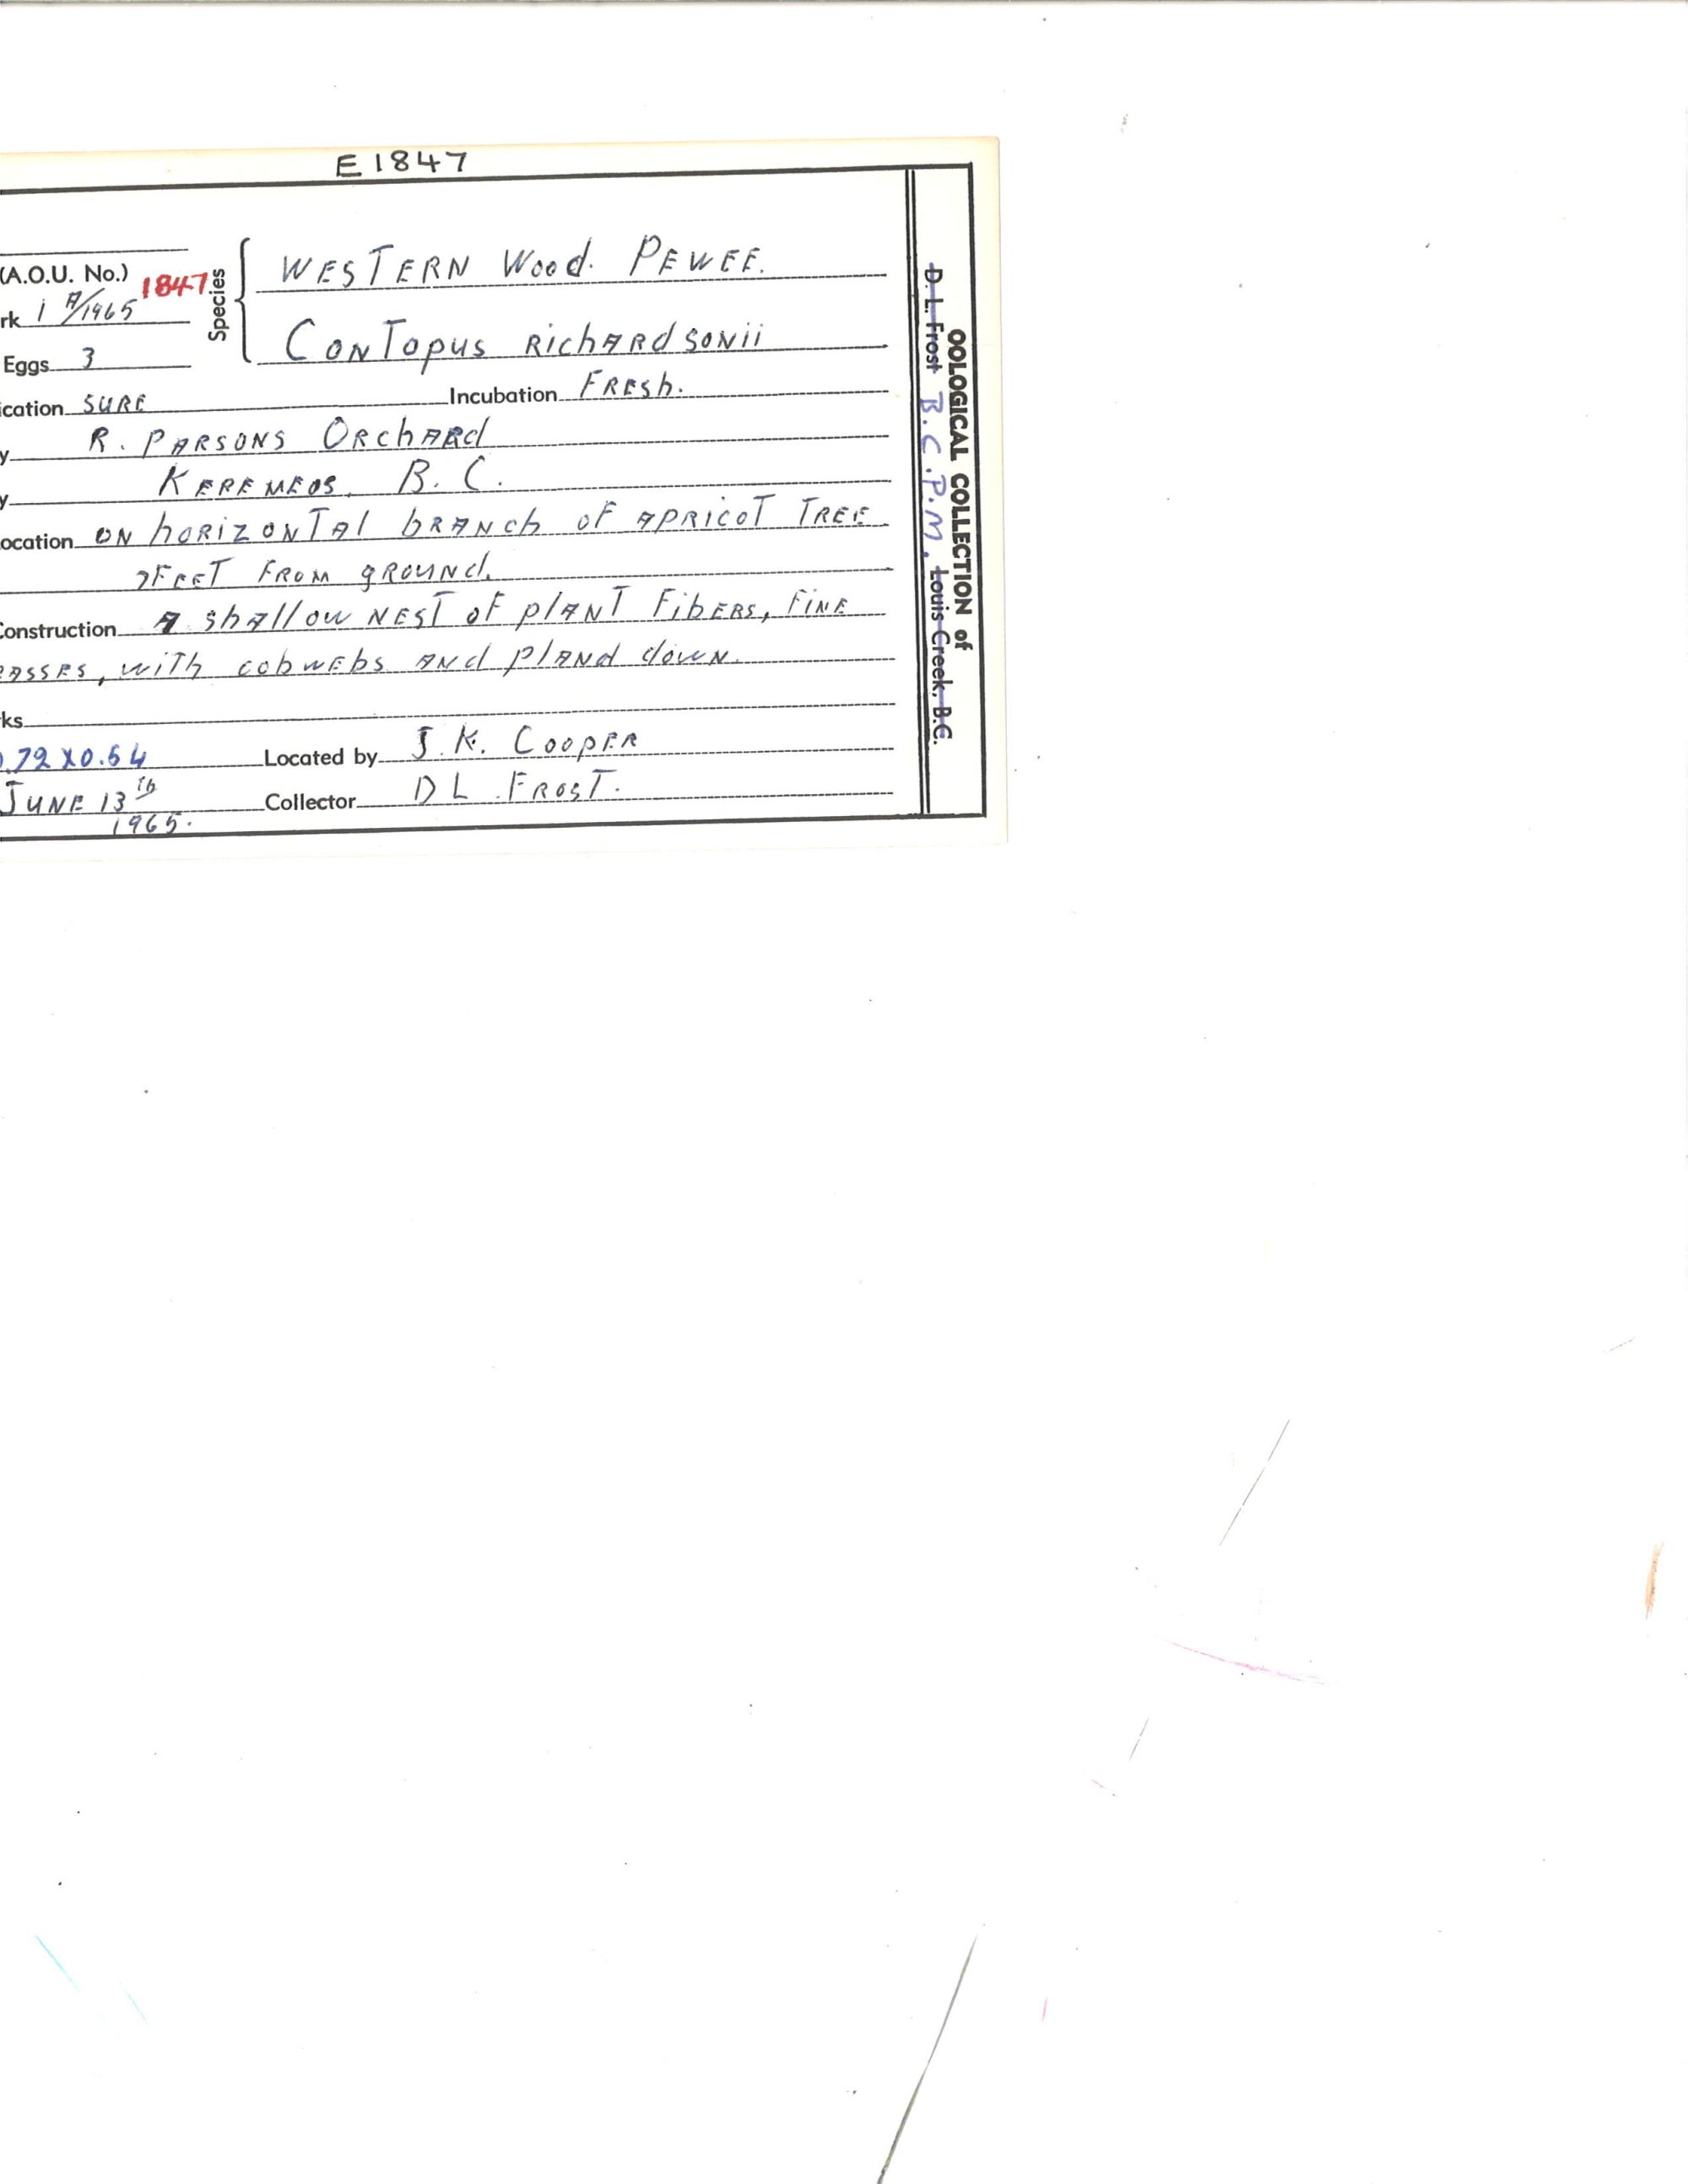 E1847
(A.O.U. No.) 1847
rk 1 A/1965
Species
WESTERN Wood. PEWEE.
CONTOPUS RICHARDSONII
Eggs 3
ication SURE Incubation FRESh.
y R. PARSONS ORChARd
y KEREMEOS, B.C.
ocation ON hORIZONTAl bRANCh OF APRICOT TREE
FEET FROM gROUNd.
Construction A ShAllow NEST oF plANT FibERS, FINE
RASSES, wiTh cobwEbs ANd plANd dowN.
ks
0.72 X0.54 Located by J.K. COOPER
JUNE 13th Collector D L. FROST.
1965.
OOLOGICAL COLLECTION of
D. L. Frost B.C.P.M. Louis Creek, B.C.